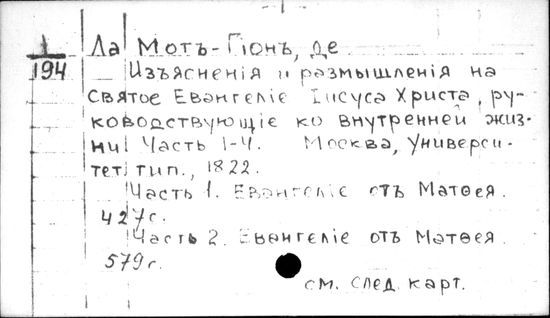 1/194 Ла Мотъ-Гіонъ, де
Изъясненія и размышленія на
святое Евангеліе Іисуса Христа, ру-
ководствующіе ко внутренней жиз-
ни. Часть 1-4. Москва, Универси-
тет. тип., 1822.
Часть 1. Евангеліе отъ Матѳея.
427с.
Часть 2. Евангеліе отъ Матѳея.
579с.
см. след. карт.